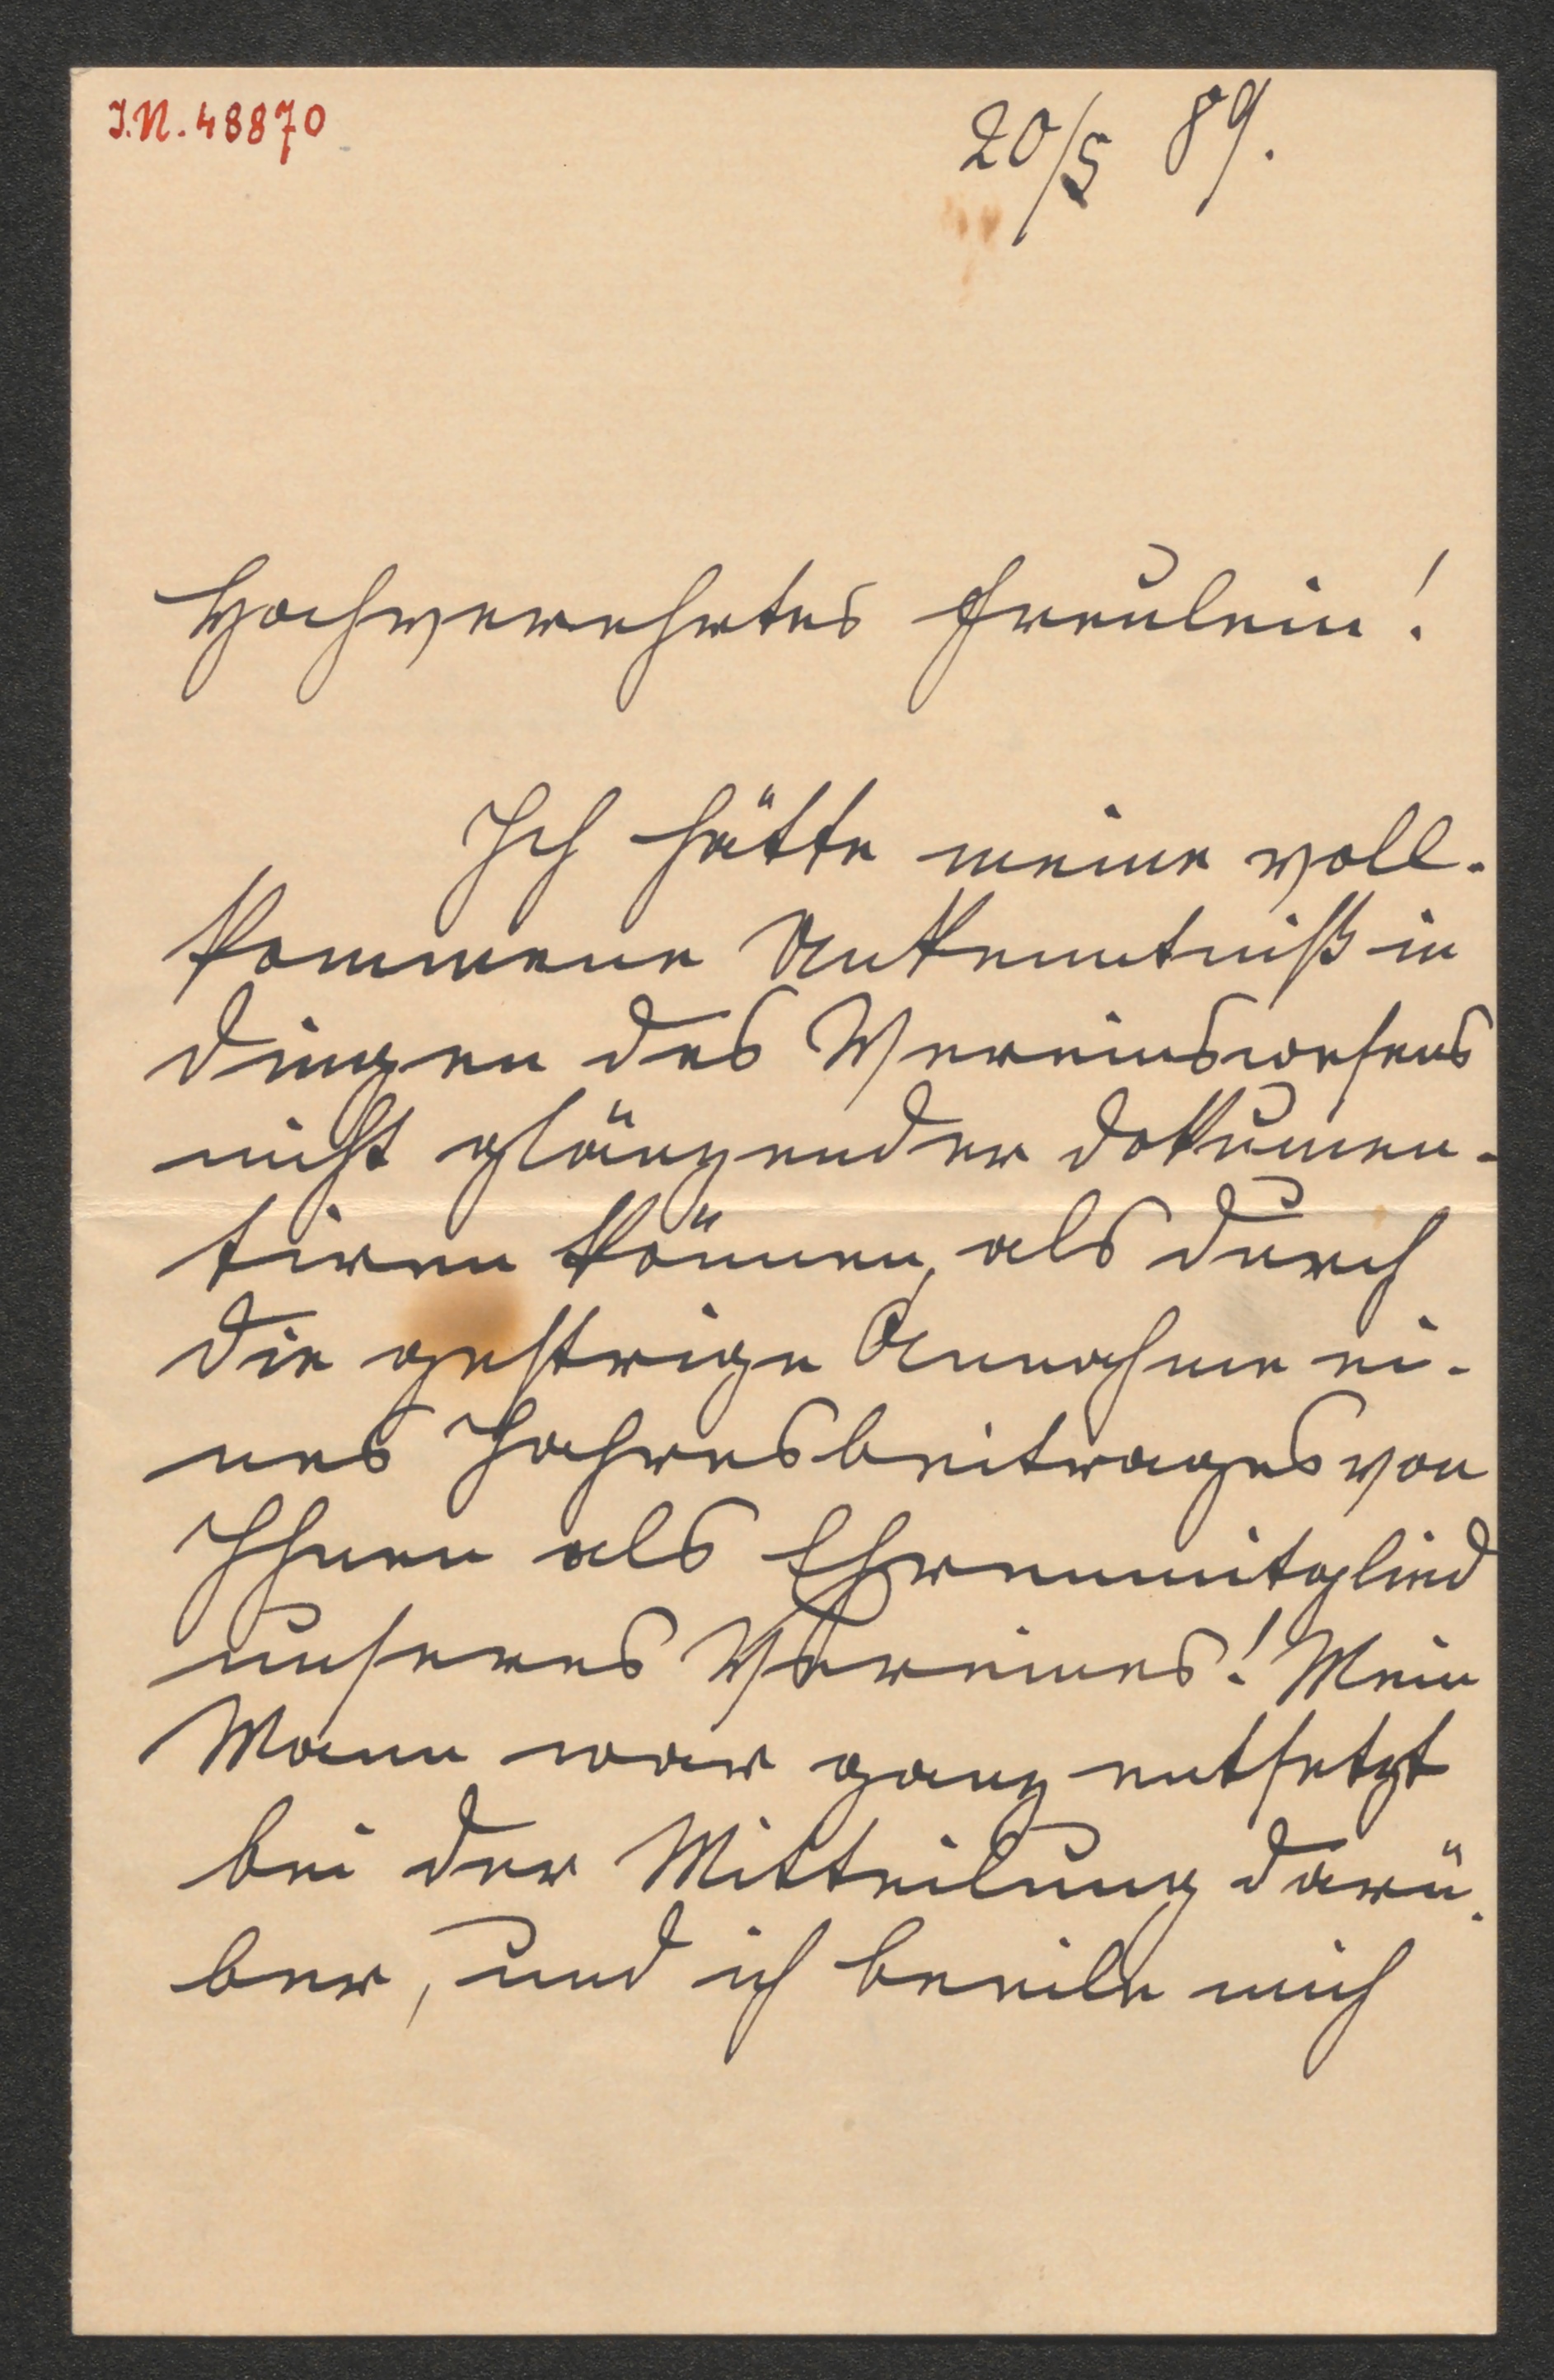 I.N. 48870
20/5 89.
Hochverehrtes Freulein!
Ich hätte meine voll-
kommene Unkenntniß in
Dingen des Vereinswesens
nicht glänzender dokumen-
tiren können, als durch
die gestrige Annahme ei-
nes Jahresbeitrages von
Ihnen als Ehrenmitglied
unseres Vereines! Mein
Mann war ganz entsetzt
bei der Mitteilung darü-
ber, und ich beeile mich